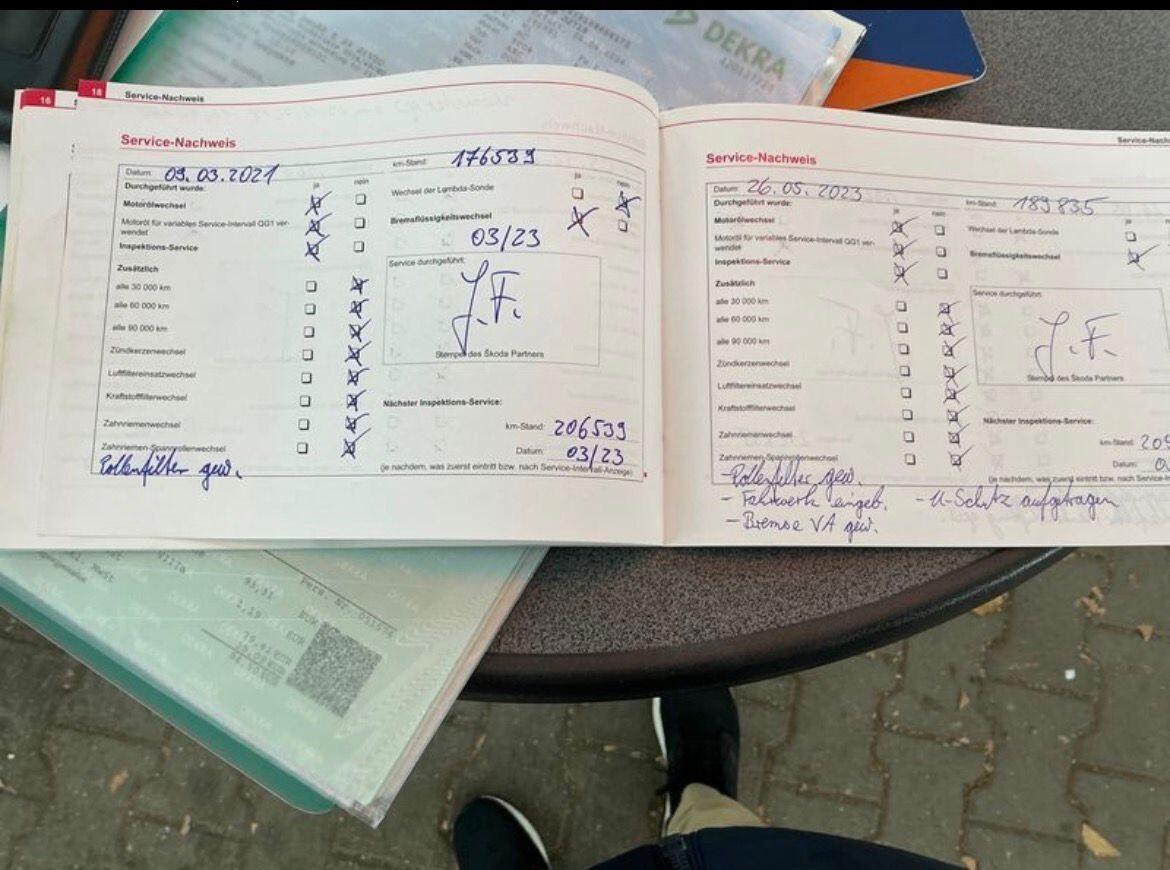 DEKRA
16
18 Service-Nachweis
Service-Nachweis
Datum: 09.03.2021
km-Stand: 176539
Durchgeführt wurde: ja nein
Motorölwechsel
Motoröl für variables Service-Intervall QG1 ver-
wendet
Inspektions-Service
Zusätzlich
alle 30 000 km
alle 60 000 km
alle 90 000 km
Zündkerzenwechsel
Luftfiltereinsatzwechsel
Kraftstofffilterwechsel
Zahnriemenwechsel
Zahnriemen-Spannrollenwechsel
Pollenfilter gew.
ja nein
Wechsel der Lambda-Sonde
Bremsflüssigkeitswechsel
03/23
Service durchgeführt:
J.F.
Stempel des Škoda Partners
Nächster Inspektions-Service:
km-Stand: 206539
Datum: 03/23
(je nachdem, was zuerst eintritt bzw. nach Service-Intervall-Anzeige)
Service-Nach
Service-Nachweis
Datum: 26.05.2023
km-Stand: 189835
Durchgeführt wurde: ja nein
Motorölwechsel
Motoröl für variables Service-Intervall QG1 ver-
wendet
Inspektions-Service
Zusätzlich
alle 30 000 km
alle 60 000 km
alle 90 000 km
Zündkerzenwechsel
Luftfiltereinsatzwechsel
Kraftstofffilterwechsel
Zahnriemenwechsel
Zahnriemen-Spannrollenwechsel
- Pollenfilter gew.
- Fahrwerk eingeb. - U-Schutz aufgetragen
- Bremse VA gew.
ja
Wechsel der Lambda-Sonde
Bremsflüssigkeitswechsel
Service durchgeführt:
J.F.
Stempel des Škoda Partners
Nächster Inspektions-Service:
km-Stand: 209
Datum: 0
(je nachdem, was zuerst eintritt bzw. nach Service-In
Pers. Nr.
Villa
93,31 EUR
1,19 EUR
MwSt